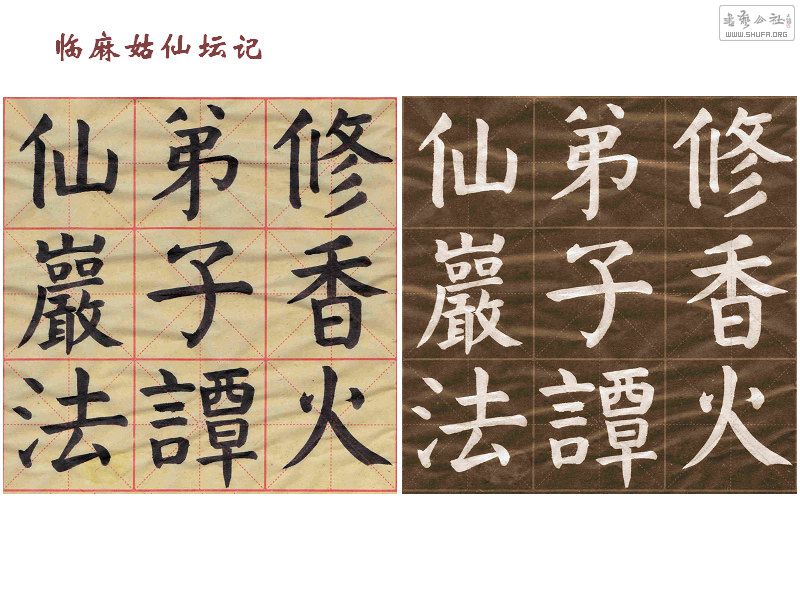 临麻姑仙坛记
修香火
弟子譚
仙巖法
修香火
弟子譚
仙巖法
WWW.SHUFA.ORG